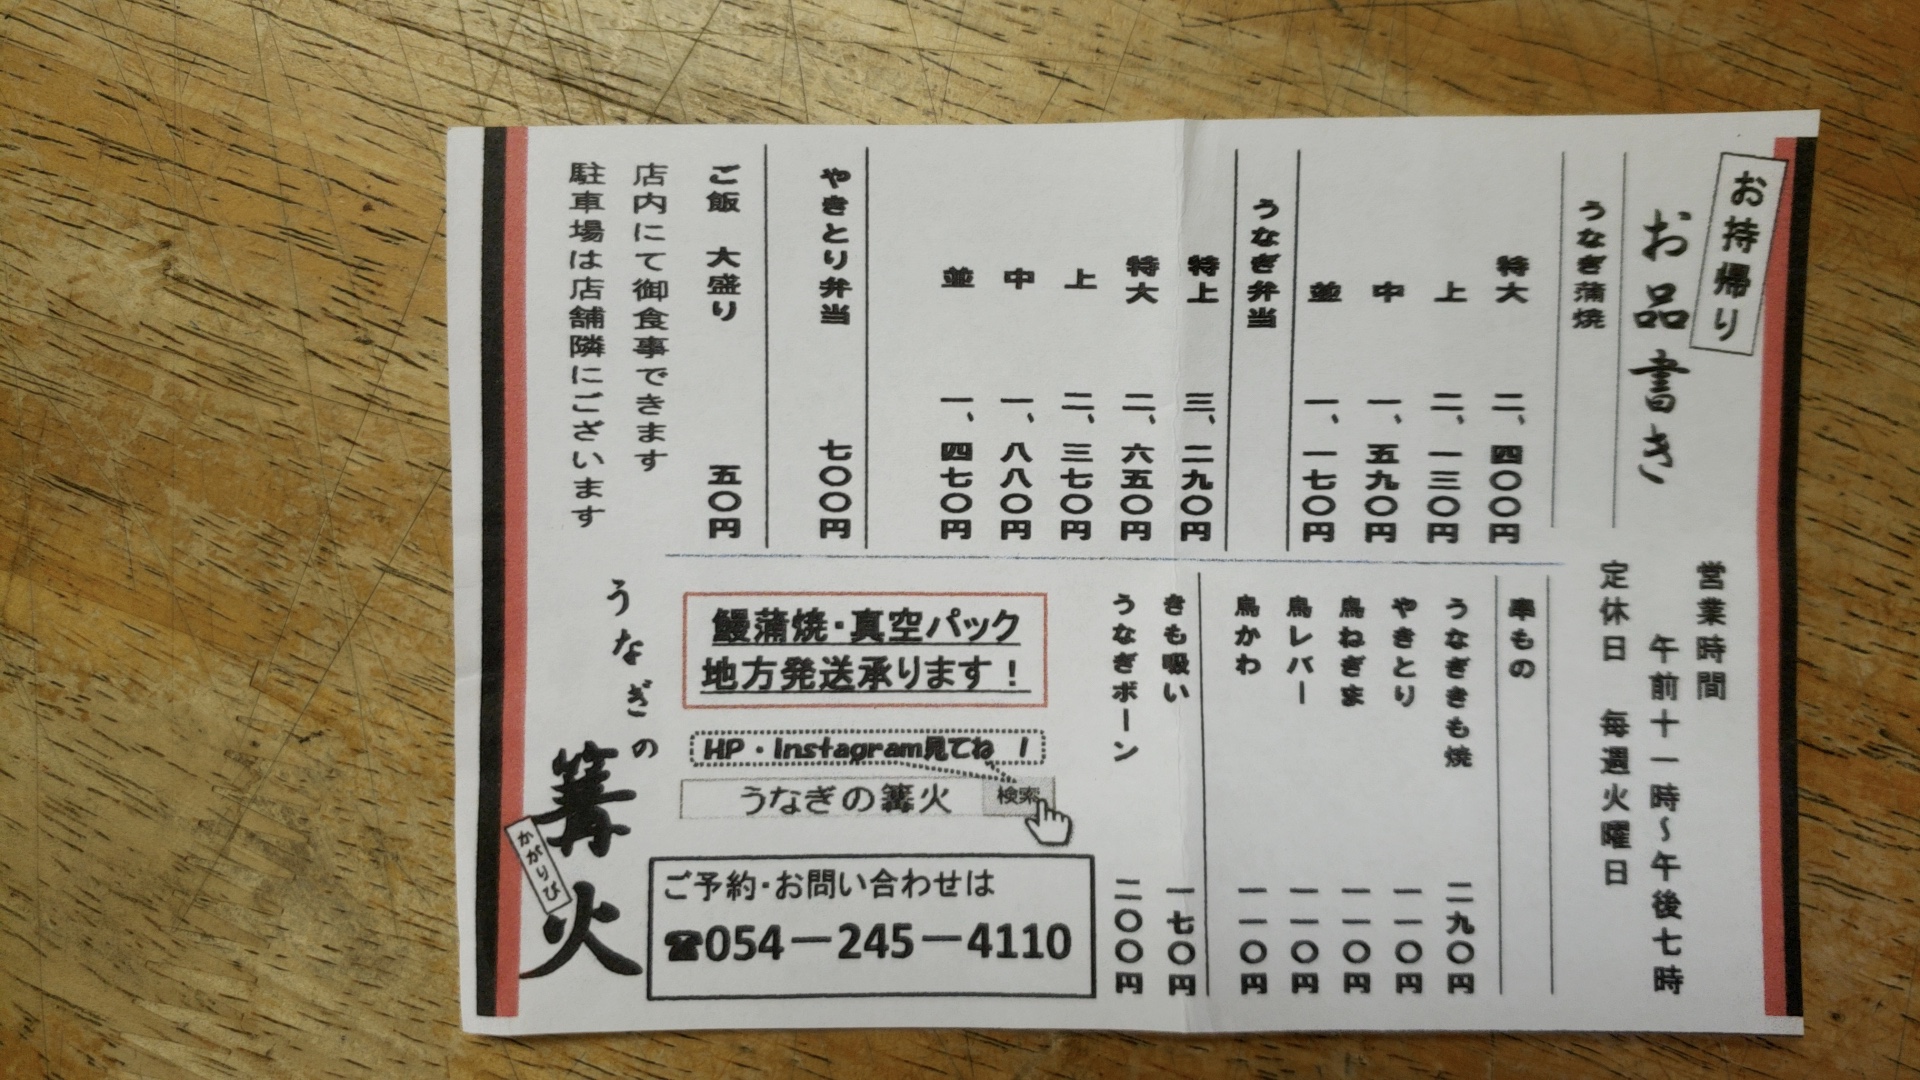 お持帰り
お品書き
うなぎ蒲焼
特大 二、四〇〇円
上 二、一三〇円
中 一、五九〇円
並 一、一七〇円
うなぎ弁当
特上 三、二九〇円
特大 二、六五〇円
上 二、三七〇円
中 一、八八〇円
並 一、四七〇円
やきとり弁当 七〇〇円
ご飯 大盛り 五〇円
店内にて御食事できます
駐車場は店舗隣にございます
営業時間
午前十一時～午後七時
定休日 毎週火曜日
串もの
うなぎきも焼 二九〇円
やきとり 一一〇円
鳥ねぎま 一一〇円
鳥レバー 一一〇円
鳥かわ 一一〇円
きも吸い 一七〇円
うなぎボーン 二〇〇円
鰻蒲焼・真空パック
地方発送承ります！
HP・Instagram見てね！
うなぎの篝火 検索
ご予約・お問い合わせは
☎054－245－4110
うなぎの
篝火
かがりび